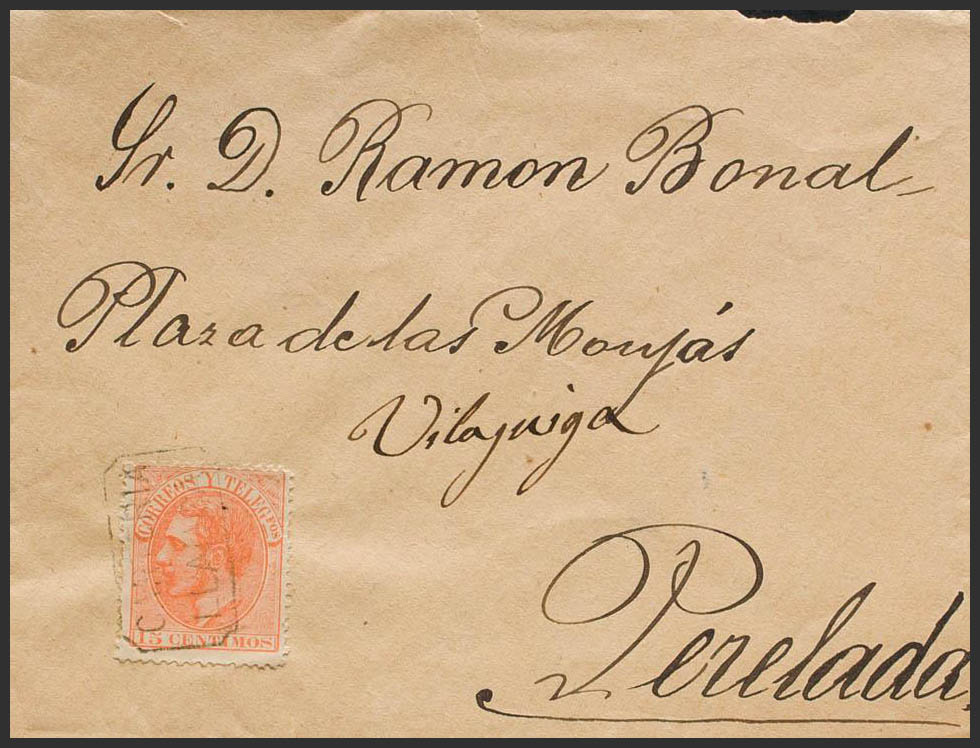 Sr. D. Ramon Bonal
Plaza de las Monjás
Vilajuiga
CORREOS Y TELEGFOS
15 CENTIMOS
Perelada